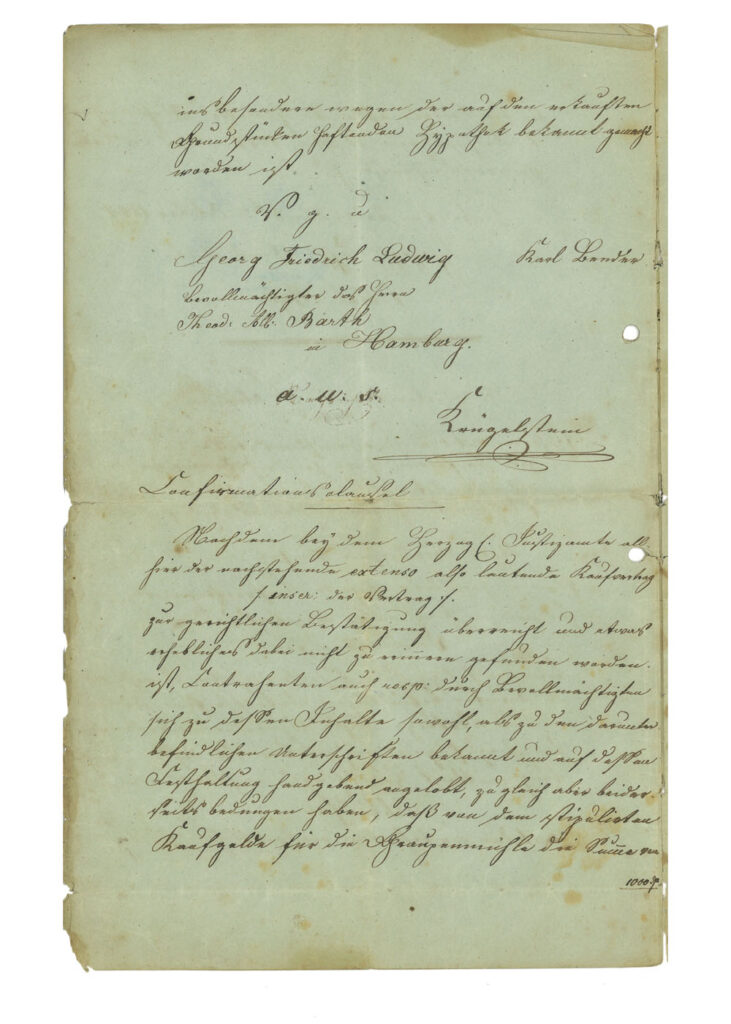 insbesondere wegen der auf den erkauften
Grundstücken haftenden Hypothek bekannt gemacht
worden ist.
V. g. u
Georg Friedrich Ludwig Karl Bender
Bevollmächtigter des Herrn
Theod: Alb: Barth
in Hamburg.
a. u. s.
Krügelstein
Confirmationsclausel
Nachdem bey dem Herzogl. Justizamte all-
hier der nachstehende extenso also lautende Kaufvertrag
/: inser: der Vertrag :/.
zur gerichtlichen Bestätigung überreicht und etwas
erhebliches dabei nicht zu erinnern gefunden worden
ist, Contrahenten auch resp: durch Bevollmächtigten
sich zu dessen Inhalte sowohl, als zu den darunter
befindlichen Unterschriften bekannt und auf dessen
Festhaltung handgebend angelobt, zugleich aber beider-
seits bedungen haben, daß von dem stipulirten
Kaufgelde für die Graupenmühle die Summe von
1000